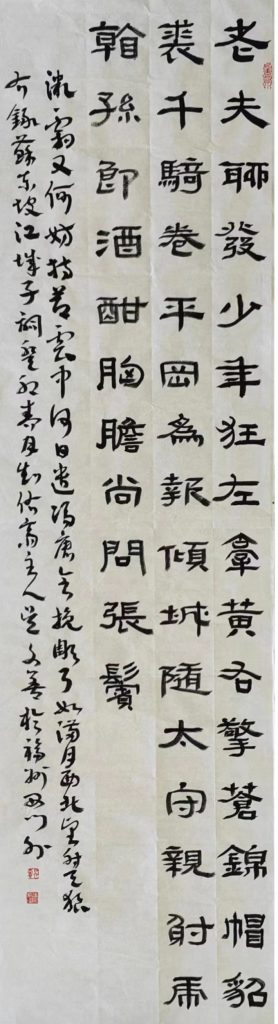 老夫聊發少年狂左牽黃右擎蒼錦帽貂
裘千騎卷平岡為報傾城隨太守親射虎
看孫郎酒酣胸膽尚問張鬢
微霜又何妨持節雲中何日遣馮唐會挽雕弓如滿月西北望射天狼
右錄蘇東坡江城子詞春月齋主人文善於福州西門外